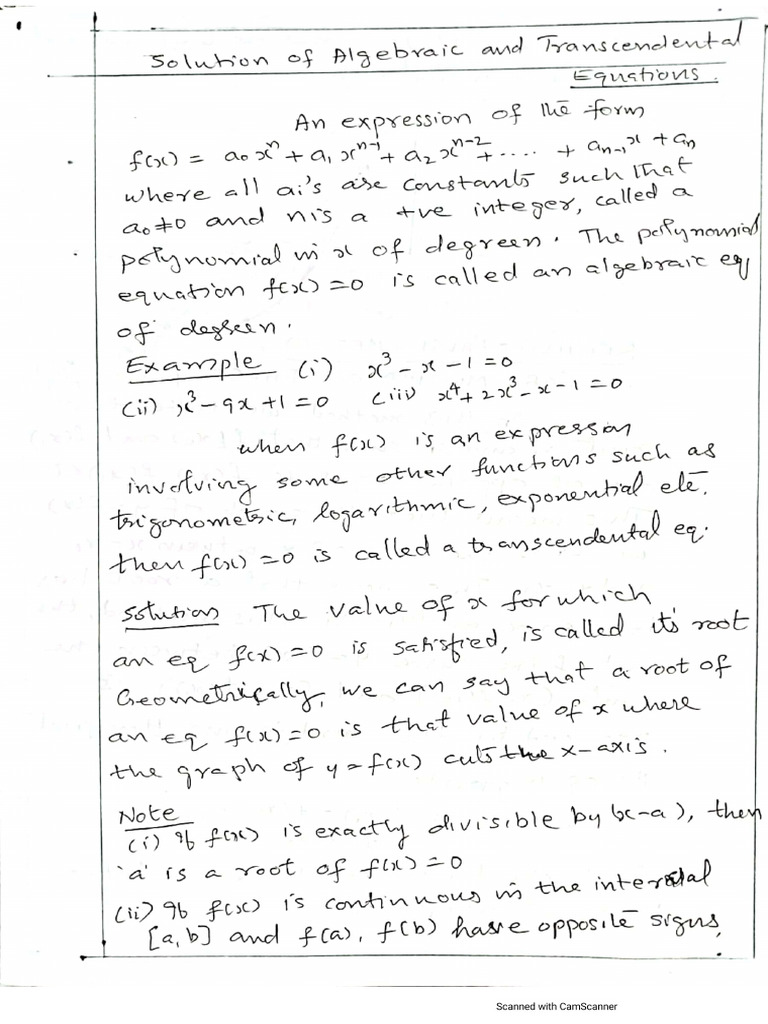 Solution of Algebraic and Transcendental
Equations.
An expression of the form
f(x) = a₀xⁿ + a₁xⁿ⁻¹ + a₂xⁿ⁻² + .... + aₙ₋₁x + aₙ
where all ai's are constants such that
a₀≠0 and n is a +ve integer, called a
polynomial in x of degree n. The polynomial
equation f(x) = 0 is called an algebraic eq
of degree n.
Example (i) x³ - x - 1 = 0
(ii) x³ - 9x + 1 = 0 (iii) x⁴ + 2x³ - x - 1 = 0
when f(x) is an expression
involving some other functions such as
trigonometric, logarithmic, exponential etc.
then f(x) = 0 is called a transcendental eq.
Solution The value of x for which
an eq f(x) = 0 is satisfied, is called its root
Geometrically, we can say that a root of
an eq f(x) = 0 is that value of x where
the graph of y = f(x) cuts the x-axis.
Note
(i) If f(x) is exactly divisible by (x-a), then
'a' is a root of f(x) = 0
(ii) If f(x) is continuous in the interval
[a, b] and f(a), f(b) have opposite signs,
Scanned with CamScanner